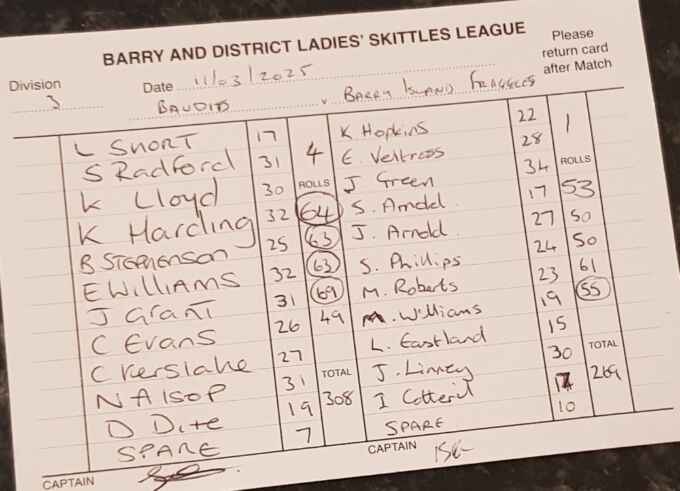 BARRY AND DISTRICT LADIES' SKITTLES LEAGUE
Please return card after Match
Division 3
Date 11/03/2025
BAUDITS v BARRY ISLAND FRAGGLES
L SHORT 17
S Radford 31
K Lloyd 30
K Harding 32
B STEPHENSON 25
E WILLIAMS 32
J GRANT 31
C EVANS 26
C Kerslake 27
N Alsop 31
D Dite 19
SPARE 7
4
ROLLS
64
63
63
69
49
TOTAL
308
K Hopkins 22
E. Veltroos 28
J Green 34
S. Arndel 17
J. Arnold 27
S. Phillips 24
M. Roberts 23
M. Williams 19
L. Eastland 15
J. Linney 30
I Cotteril 17
SPARE 10
1
ROLLS
53
50
50
61
55
TOTAL
269
CAPTAIN
CAPTAIN